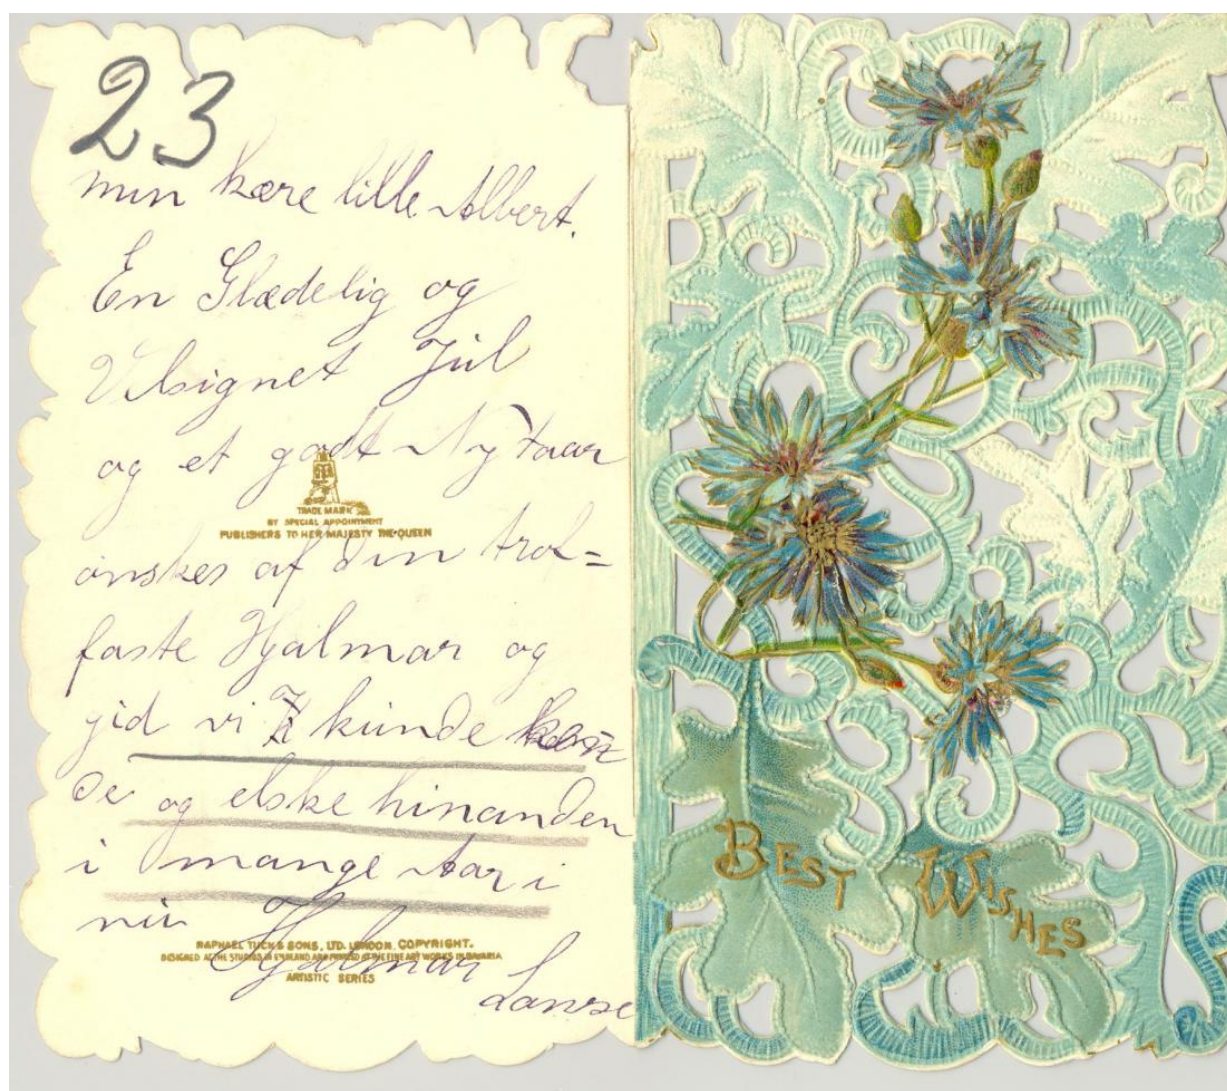 23
min kære lille Albert.
En Glædelig og
Velsignet Jul
og et godt Nytaar
TRADE MARK
BY SPECIAL APPOINTMENT
PUBLISHERS TO HER MAJESTY THE QUEEN
ønskes af din tro=
faste Hjalmar og
gid vi kunde
de og elske hinanden
i mange Aar i
Hjalmar
RAPHAEL TUCK & SONS, LTD. LONDON. COPYRIGHT.
DESIGNED AT THE STUDIOS IN ENGLAND AND PRINTED AT THE FINE ART WORKS IN BAVARIA
ARTISTIC SERIES
BEST WISHES